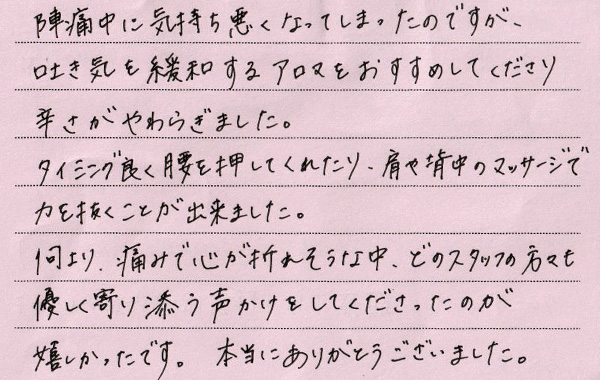 陣痛中に気持ち悪くなってしまったのですが、
吐き気を緩和するアロマをおすすめしてくださり
辛さがやわらぎました。
タイミング良く腰を押してくれたり、肩や背中のマッサージで
力を抜くことが出来ました。
何より、痛みで心が折れそうな中、どのスタッフの方々も
優しく寄り添う声かけをしてくださったのが
嬉しかったです。 本当にありがとうございました。